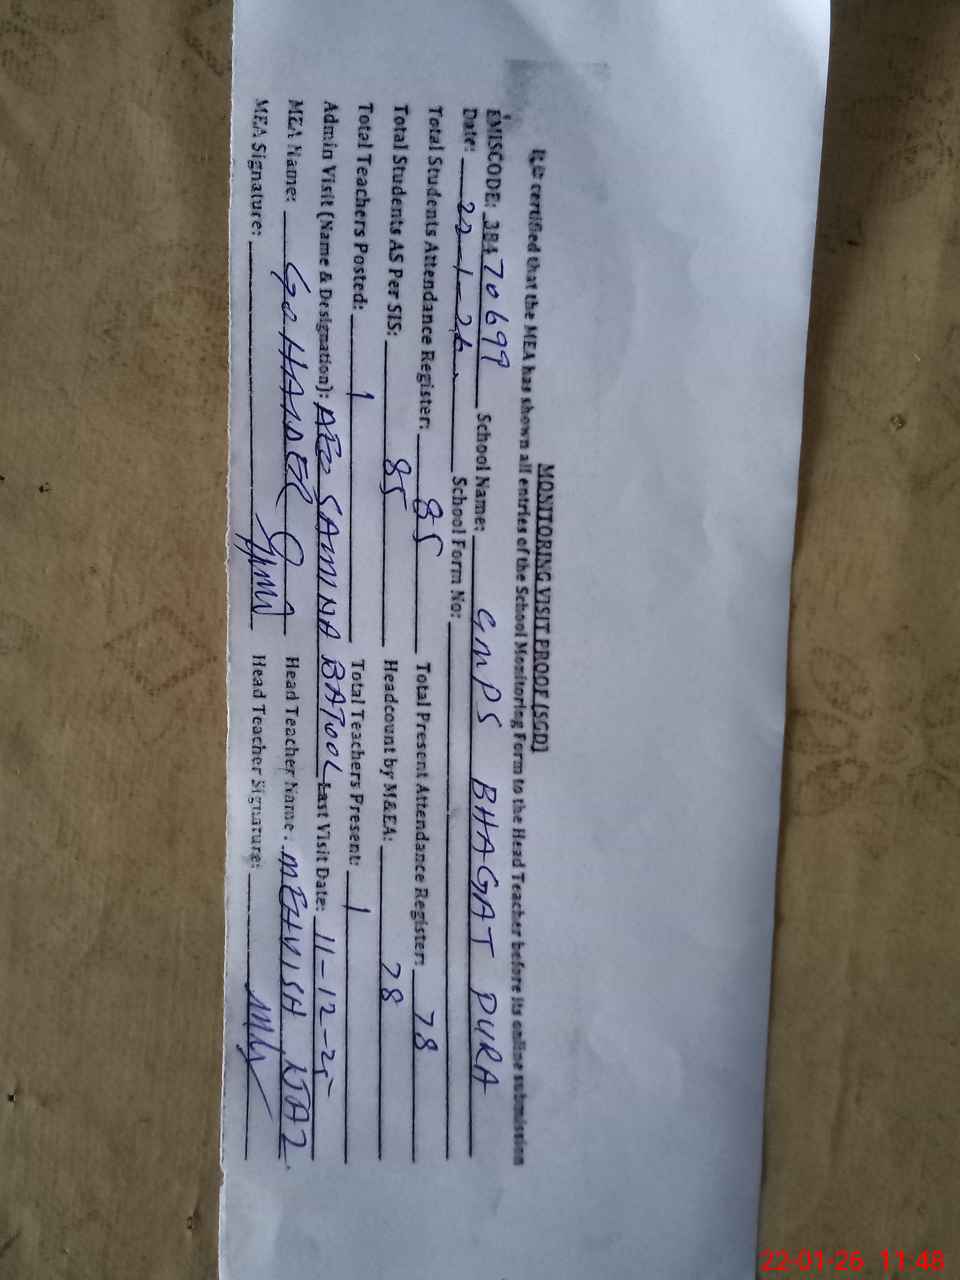 MONITORING VISIT PROOF [SGD]
It is certified that the MEA has shown all entries of the School Monitoring Form to the Head Teacher before its online submission
EMISCODE: 38470699 School Name: GMPS BHAGAT PURA
Date: 22-1-26. School Form No:
Total Students Attendance Register: 85 Total Present Attendance Register: 78
Total Students AS Per SIS: 85 Headcount by M&EA: 78
Total Teachers Posted: 1 Total Teachers Present: 1
Admin Visit (Name & Designation): AEO SAMINA BATOOL Last Visit Date: 11-12-25
MEA Name: Head Teacher Name: MEHVISH
MEA Signature: Head Teacher Signature:
22-01-26 11:48